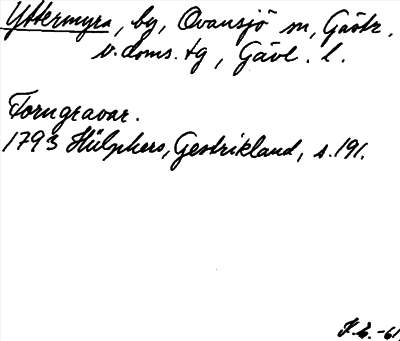 Yttermyra, by, Ovansjö sn, Gästr.
v. doms. tg, Gävl. l.
Forngravar.
1793 Hülphers, Gestrikland, s. 191.
-61.